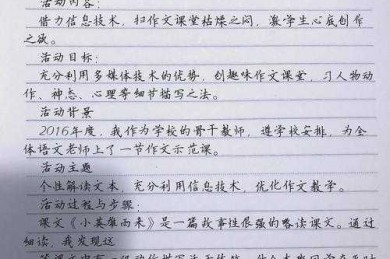 活动内容：
借力信息技术，扫作文课堂枯燥之闷，激学生心底创作
之欲。
活动目标：
充分利用多媒体技术的优势，创趣味作文课堂，习人物动
作、神态、心理等细节描写之法。
活动背景
2016年度，我作为学校的骨干教师，遵学校安排，为全
体语文老师上了一节作文示范课。
活动主题
个性解读文本，充分利用信息技术，优化作文教学。
活动过程与步骤：
课文《小英雄雨来》是一篇故事性很强的略读课文。通过
细读，我发现这